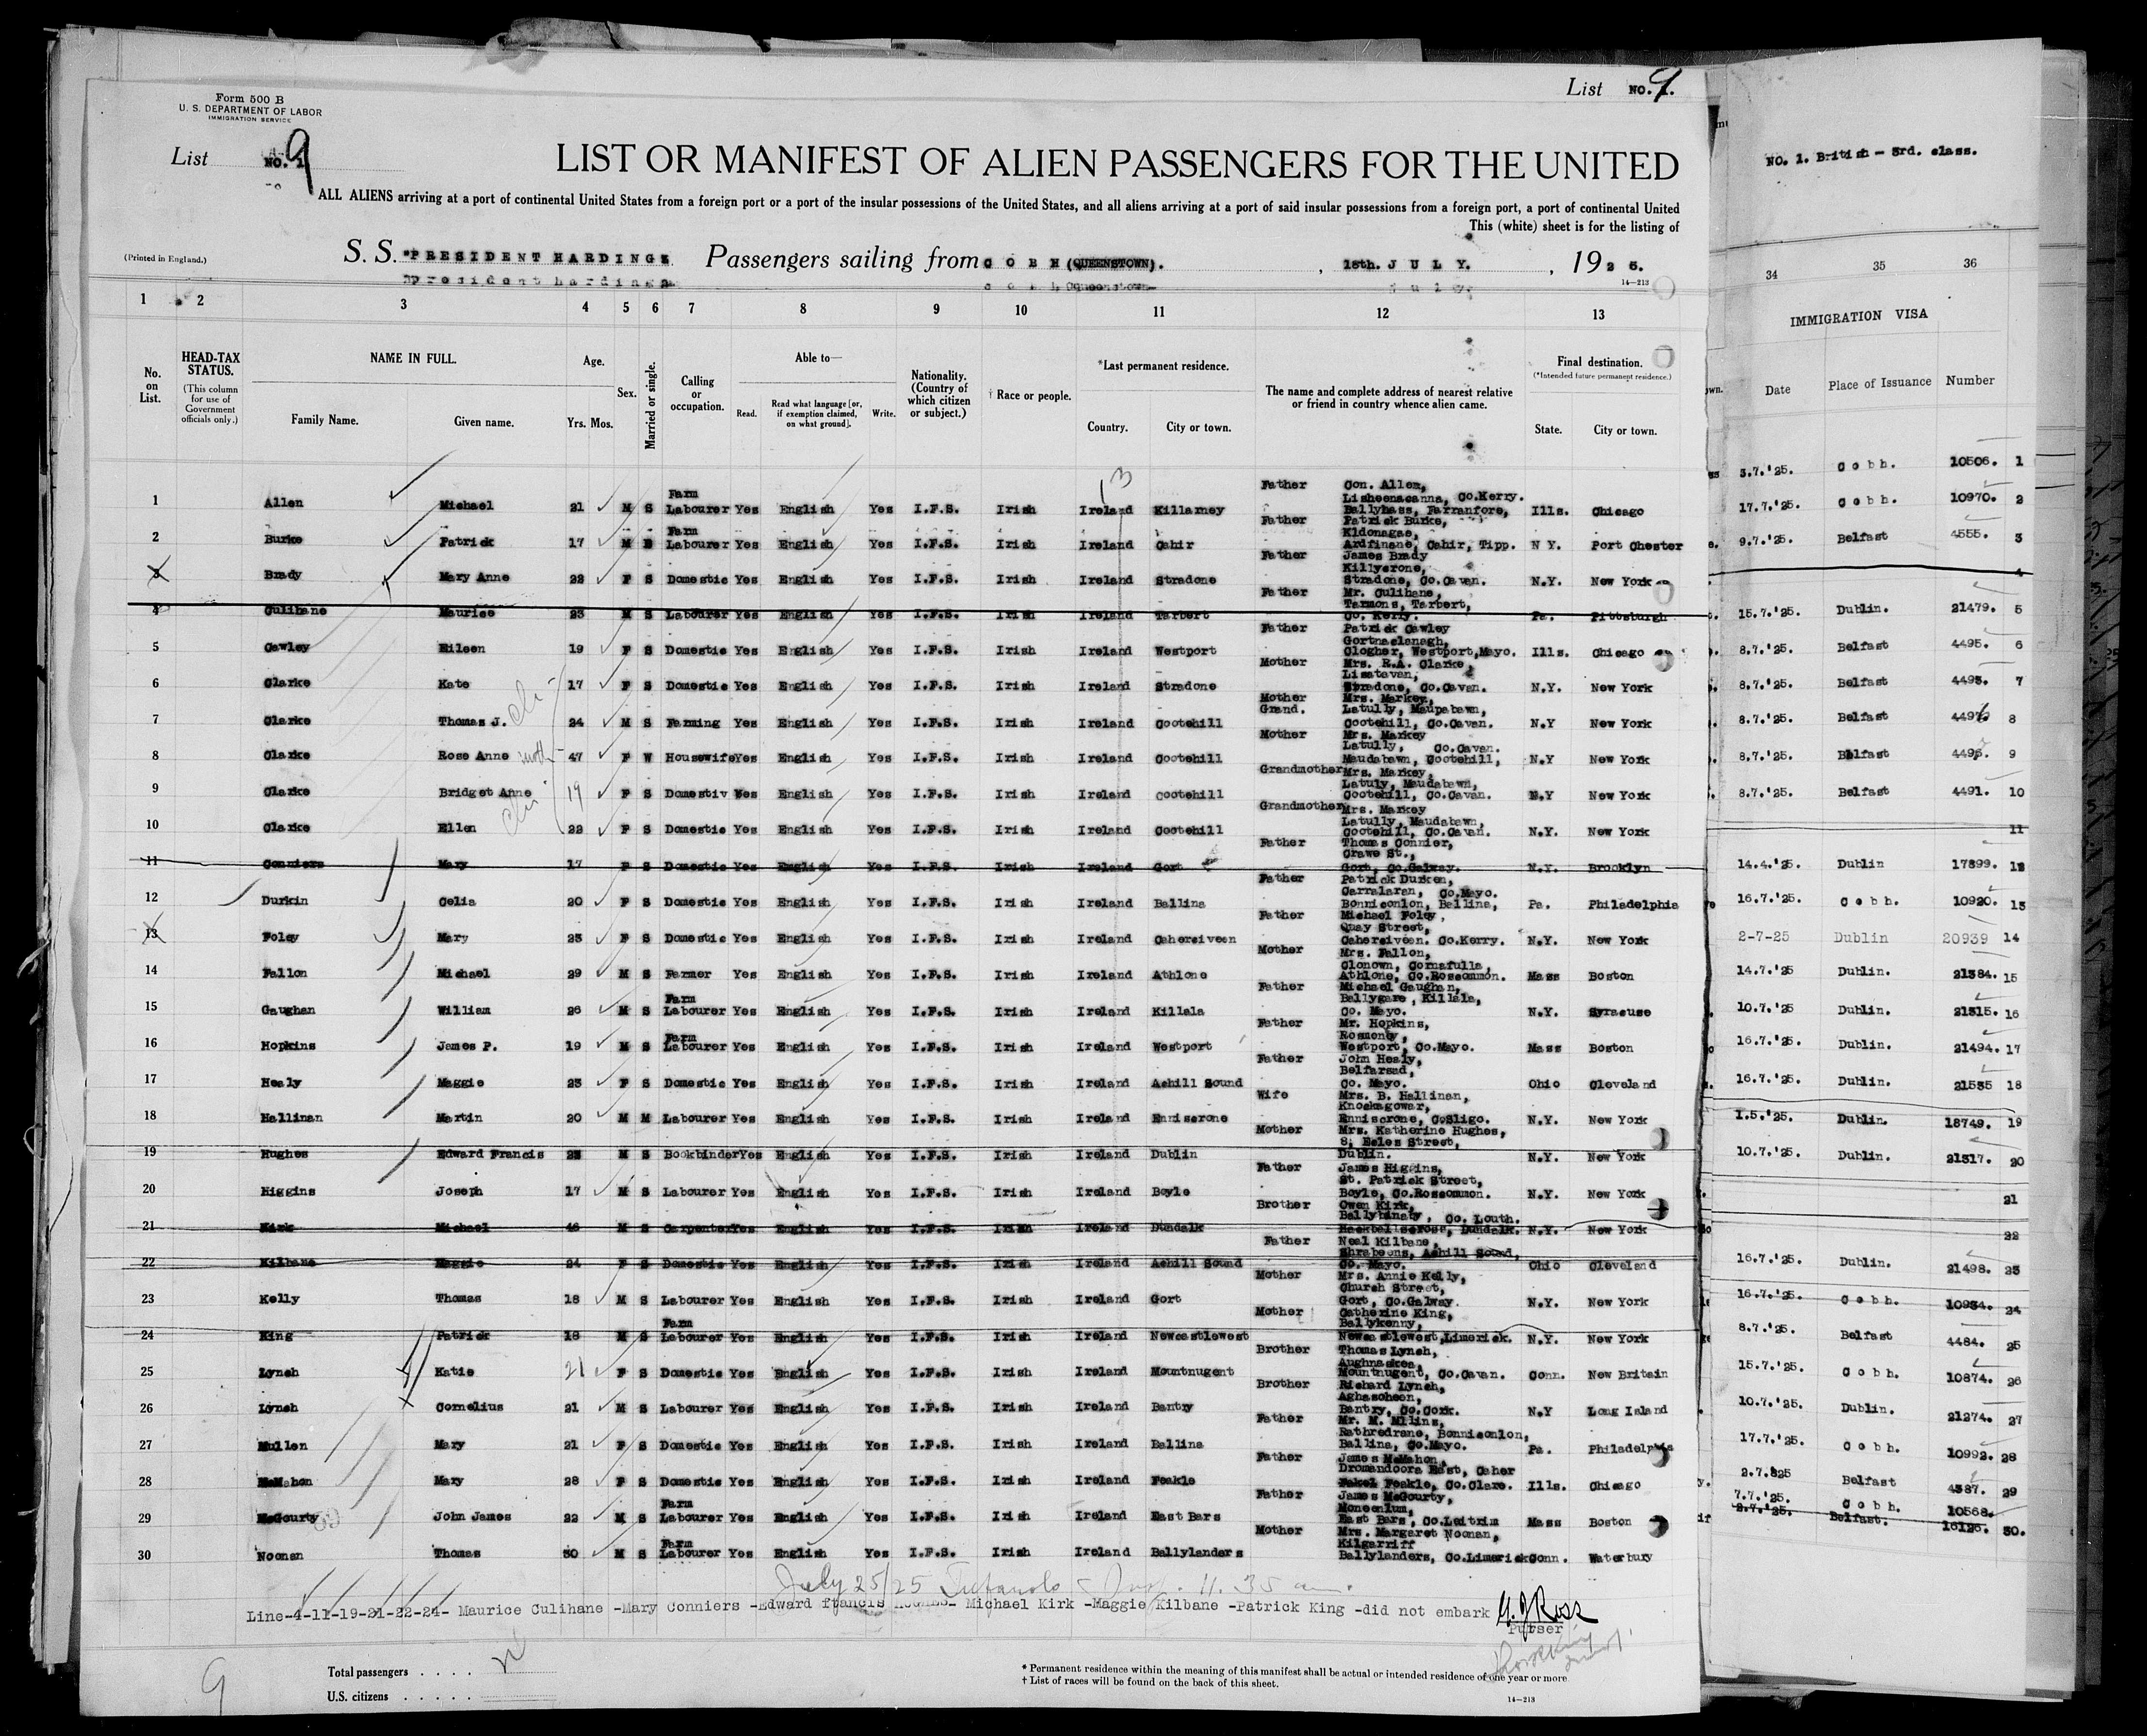 List NO. 9.
Form 500 B
U. S. DEPARTMENT OF LABOR
IMMIGRATION SERVICE
List NO. 9
LIST OR MANIFEST OF ALIEN PASSENGERS FOR THE UNITED
ALL ALIENS arriving at a port of continental United States from a foreign port or a port of the insular possessions of the United States, and all aliens arriving at a port of said insular possessions from a foreign port, a port of continental United
This (white) sheet is for the listing of
(Printed in England.)
S. S. "PRESIDENT HARDING" Passengers sailing from COBH (QUEENSTOWN). , 18th. JULY. , 1925.
14—213
1 2 3 4 5 6 7 8 9 10 11 12 13
No. on List.
HEAD-TAX STATUS.
(This column for use of Government officials only.)
NAME IN FULL.
Family Name. Given name.
Age.
Yrs. Mos.
Sex.
Married or single.
Calling or occupation.
Able to—
Read. Read what language [or, if exemption claimed, on what ground]. Write.
Nationality. (Country of which citizen or subject.)
† Race or people.
*Last permanent residence.
Country. City or town.
The name and complete address of nearest relative or friend in country whence alien came.
Final destination.
(*Intended future permanent residence.)
State. City or town.
1 Allen Michael 21 M S Farm Labourer Yes English Yes I.F.S. Irish Ireland Killarney Father Con. Allen, Lisheenacanna, Co.Kerry. Ballyhass, Farranfore, Ills. Chicago
2 Burke Patrick 17 M S Farm Labourer Yes English Yes I.F.S. Irish Ireland Cahir Father Patrick Burke, Kldonagae, Ardfinane, Cahir, Tipp. N Y. Port Chester
3 Brady Mary Anne 22 F S Domestic Yes English Yes I.F.S. Irish Ireland Stradone Father James Brady Killycrone, Stradone, Co.Cavan. N.Y. New York
4 Culihane Maurice 23 M S Labourer Yes English Yes I.F.S. Irish Ireland Tarbert Father Mr. Culihane, Tarmons, Tarbert, Co. Kerry. Pa. Pittsburgh
5 Cawley Eileen 19 F S Domestic Yes English Yes I.F.S. Irish Ireland Westport Father Patrick Cawley Gortnaclanagh, Clogher, Westport,Mayo. Ills. Chicago
6 Clarke Kate 17 F S Domestic Yes English Yes I.F.S. Irish Ireland Stradone Mother Mrs. R.A. Clarke, Lisatavan, Stradone, Co.Cavan. N.Y. New York
7 Clarke Thomas J. 24 M S Farming Yes English Yes I.F.S. Irish Ireland Cootehill Mother Grand. Mrs. Markey, Latully, Maupabawn, Cootehill, Co.Cavan. N.Y New York
8 Clarke Rose Anne 47 F W Housewife Yes English Yes I.F.S. Irish Ireland Cootehill Mother Mrs. Markey Latully, Co.Cavan. Maudabawn, Cootehill, N.Y New York
9 Clarke Bridget Anne 19 F S Domestiv Yes English Yes I.F.S. Irish Ireland Cootehill Grandmother Mrs. Markey, Latuly, Maudabawn, Cootehill, Co.Cavan. N.Y New York
10 Clarke Ellen 22 F S Domestic Yes English Yes I.F.S. Irish Ireland Cootehill Grandmother Mrs. Markey Latully, Maudabawn, Cootehill, Co.Cavan. N.Y. New York
11 Conniers Mary 17 F S Domestic Yes English Yes I.F.S. Irish Ireland Gort Father Thomas Connier, Crawe St., Gort, Co.Galway. N.Y. Brooklyn
12 Durkin Celia 20 F S Domestic Yes English Yes I.F.S. Irish Ireland Ballina Father Patrick Durken, Carralaran, Co.Mayo. Bonniconlon, Ballina, Pa. Philadelphia
13 Foley Mary 23 F S Domestic Yes English Yes I.F.S. Irish Ireland Cahersiveen Father Michael Foley, Quay Street, Cahersiveen. Co.Kerry. N.Y. New York
14 Fallon Michael 29 M S Farmer Yes English Yes I.F.S. Irish Ireland Athlone Mother Mrs. Fallon, Clonown, Cornafulla, Athlone, Co.Roscommon. Mass Boston
15 Gaughan William 26 M S Farm Labourer Yes English Yes I.F.S. Irish Ireland Killala Father Michael Gaughan, Ballygare, Killala, Co. Mayo. N.Y. Syracuse
16 Hopkins James P. 19 M S Farm Labourer Yes English Yes I.F.S. Irish Ireland Westport Father Mr. Hopkins, Rosmoney, Westport, Co.Mayo. Mass Boston
17 Healy Maggie 23 F S Domestic Yes English Yes I.F.S. Irish Ireland Achill Sound Father John Healy, Belfarsad, Co. Mayo. Ohio Cleveland
18 Hallinan Martin 20 M M Labourer Yes English Yes I.F.S. Irish Ireland Enniscrone Wife Mrs. B. Hallinan, Knockagowar, Enniscrone, Co.Sligo. N.Y. New York
19 Hughes Edward Francis 23 M S Bookbinder Yes English Yes I.F.S. Irish Ireland Dublin Mother Mrs. Katherine Hughes, 8, Eccles Street, Dublin. N.Y. New York
20 Higgins Joseph 17 M S Labourer Yes English Yes I.F.S. Irish Ireland Boyle Father James Higgins, St. Patrick Street, Boyle, Co.Roscommon. N.Y. New York
21 Kirk Michael 46 M S Carpenter Yes English Yes I.F.S. Irish Ireland Dundalk Brother Owen Kirk, Ballybinaby, Co. Louth. Hackballscross, Dundalk. N.Y. New York
22 Kilbane Maggie 24 F S Domestic Yes English Yes I.F.S. Irish Ireland Achill Sound Father Neal Kilbane, Shrabeons, Achill Sound, Co. Mayo. Ohio Cleveland
23 Kelly Thomas 18 M S Labourer Yes English Yes I.F.S. Irish Ireland Gort Mother Mrs. Annie Kelly, Church Street, Gort, Co.Galway. N.Y. New York
24 King Patrick 18 M S Farm Labourer Yes English Yes I.F.S. Irish Ireland Newcastlewest Mother Catherine King, Ballykenny, Newcastlewest,Limerick. N.Y. New York
25 Lynch Katie 21 F S Domestic Yes English Yes I.F.S. Irish Ireland Mountnugent Brother Thomas Lynch, Aughnaskea, Mountnugent, Co.Cavan. Conn. New Britain
26 Lynch Cornelius 21 M S Labourer Yes English Yes I.F.S. Irish Ireland Bantry Brother Richard Lynch, Aghascheen, Bantry, Co.Cork. N.Y Long Island
27 Mullen Mary 21 F S Domestic Yes English Yes I.F.S. Irish Ireland Ballina Father Mr. M. Mllins, Rathredrane, Bonniconlon, Ballina, Co.Mayo. Pa. Philadelphia
28 McMahon Mary 28 F S Domestic Yes English Yes I.F.S. Irish Ireland Feakle Father James McMahon, Dromandoora East, Caher Feakle, Co.Clare. Ills. Chicago
29 McGourty John James 22 M S Farm Labourer Yes English Yes I.F.S. Irish Ireland East Bars Father James McGourty, Moneenlum, East Bars, Co.Leitrim Mass Boston
30 Noonan Thomas 30 M S Farm Labourer Yes English Yes I.F.S. Irish Ireland Ballylanders Mother Mrs. Margaret Noonan, Kilgarriff Ballylanders, Co.Limerick Conn. Waterbury
July 25/25 11.35 am.
Line-4-11-19-21-22-24- Maurice Culihane -Mary Conniers -Edward francis Hughes- Michael Kirk -Maggie Kilbane -Patrick King -did not embark
Purser
9
Total passengers . . . .
U.S. citizens . . . . .
* Permanent residence within the meaning of this manifest shall be actual or intended residence of one year or more
† List of races will be found on the back of this sheet.
14—213
NO. 1. British — 3rd. class.
34 35 36
IMMIGRATION VISA
Date Place of Issuance Number
3.7.'25. Cobh. 10506. 1
17.7.'25. Cobh. 10970. 2
9.7.'25. Belfast 4555. 3
4
15.7.'25. Dublin. 21479. 5
8.7.'25. Belfast 4495. 6
8.7.'25. Belfast 4493. 7
8.7.'25. Belfast 8
8.7.'25. Belfast 9
8.7.'25. Belfast 4491. 10
11
14.4.'25. Dublin 17899. 12
16.7.'25. Cobh. 10920. 13
2-7-25 Dublin 20939 14
14.7.'25 Dublin. 21384. 15
10.7.'25 Dublin. 21315. 16
16.7.'25. Dublin. 21494. 17
16.7.'25. Dublin. 21535 18
1.5.'25. Dublin. 18749. 19
10.7.'25. Dublin. 21317. 20
21
22
16.7.'25. Dublin. 21498. 23
16.7.'25. Cobh. 10934. 24
8.7.'25. Belfast 4484. 25
15.7.'25. Cobh. 10874. 26
10.7.'25. Dublin. 21274. 27
17.7.'25. Cobh. 10992. 28
2.7.825 Belfast 4387. 29
7.7.'25. Cobh. 10568.
2.7.'25. Belfast. 16126. 30.